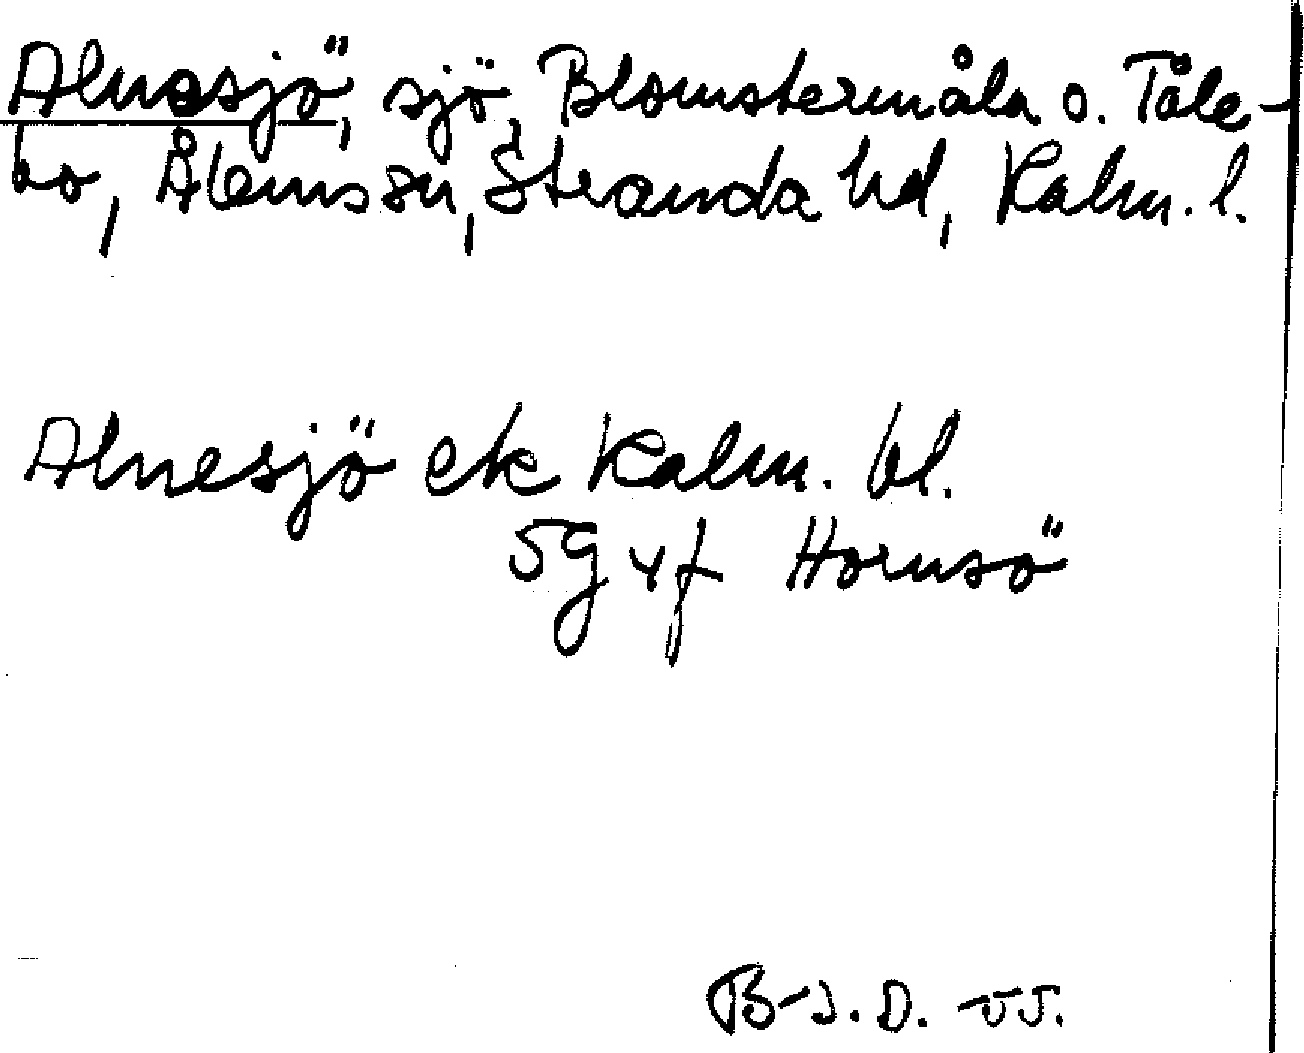 Alnesjö, sjö, Blomstermåla o. Tåle-
bo, Ålems sn, Stranda hd, Kalm. l.
Alnesjö ek Kalm. bl.
5G4f Hornsö
B-J.D. -55.